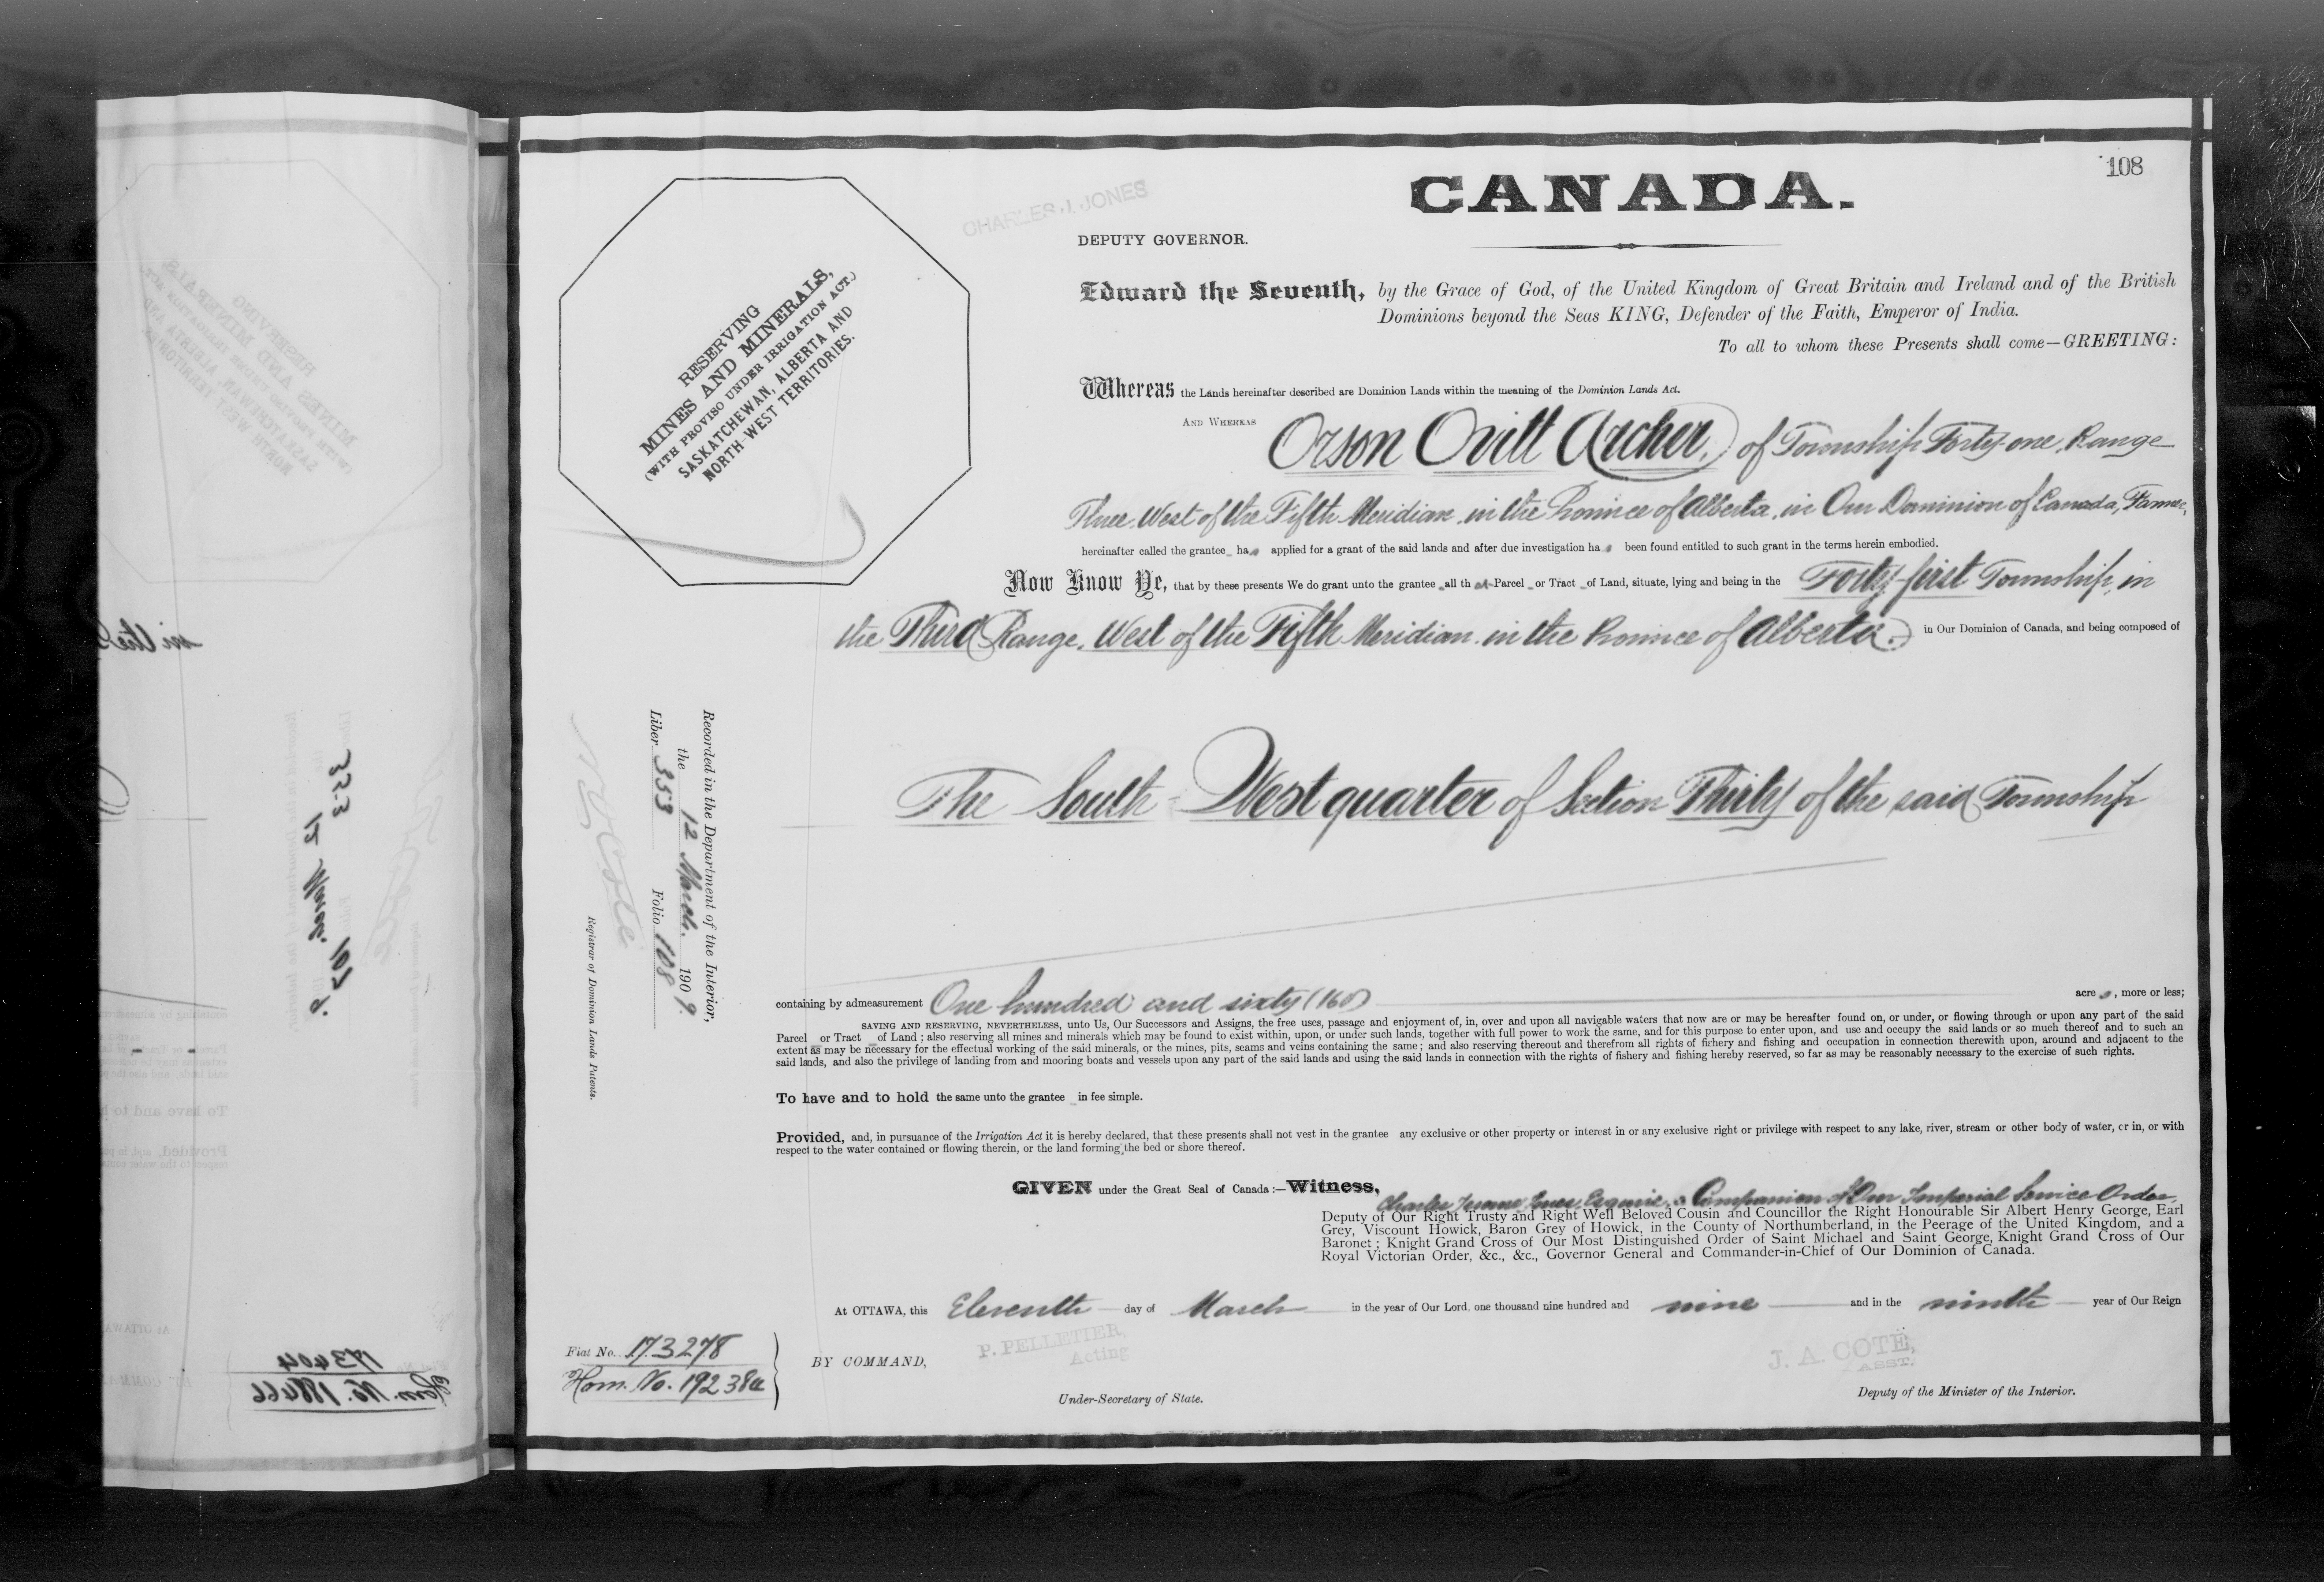 108
CANADA.
CHARLES J. JONES
DEPUTY GOVERNOR.
RESERVING
MINES AND MINERALS,
(WITH PROVISO UNDER IRRIGATION ACT.)
SASKATCHEWAN, ALBERTA AND
NORTH-WEST TERRITORIES.
Edward the Seventh, by the Grace of God, of the United Kingdom of Great Britain and Ireland and of the British
Dominions beyond the Seas KING, Defender of the Faith, Emperor of India.
To all to whom these Presents shall come—GREETING:
Whereas the Lands hereinafter described are Dominion Lands within the meaning of the Dominion Lands Act.
AND WHEREAS Orson Ovitt Archer, of Township Forty-one, Range
Three, West of the Fifth Meridian, in the Province of Alberta, in Our Dominion of Canada, Farmer,
hereinafter called the grantee has applied for a grant of the said lands and after due investigation has been found entitled to such grant in the terms herein embodied.
Now Know Ye, that by these presents We do grant unto the grantee all that Parcel or Tract of Land, situate, lying and being in the Forty-first Township, in
the Third Range, West of the Fifth Meridian, in the Province of Alberta, in Our Dominion of Canada, and being composed of
The South-West quarter of Section Thirty of the said Township
Recorded in the Department of the Interior,
the 12 March, 1909.
Liber 353 Folio 108
Registrar of Dominion Lands Patents.
containing by admeasurement One hundred and sixty (160) acres, more or less;
SAVING AND RESERVING, NEVERTHELESS, unto Us, Our Successors and Assigns, the free uses, passage and enjoyment of, in, over and upon all navigable waters that now are or may be hereafter found on, or under, or flowing through or upon any part of the said
Parcel or Tract of Land; also reserving all mines and minerals which may be found to exist within, upon, or under such lands, together with full power to work the same, and for this purpose to enter upon, and use and occupy the said lands or so much thereof and to such an
extent as may be necessary for the effectual working of the said minerals, or the mines, pits, seams and veins containing the same; and also reserving thereout and therefrom all rights of fishery and fishing and occupation in connection therewith upon, around and adjacent to the
said lands, and also the privilege of landing from and mooring boats and vessels upon any part of the said lands and using the said lands in connection with the rights of fishery and fishing hereby reserved, so far as may be reasonably necessary to the exercise of such rights.
To have and to hold the same unto the grantee in fee simple.
Provided, and, in pursuance of the Irrigation Act it is hereby declared, that these presents shall not vest in the grantee any exclusive or other property or interest in or any exclusive right or privilege with respect to any lake, river, stream or other body of water, or in, or with
respect to the water contained or flowing therein, or the land forming the bed or shore thereof.
GIVEN under the Great Seal of Canada:—Witness, Charles Jones, Esquire, a Companion of Our Imperial Service Order,
Deputy of Our Right Trusty and Right Well Beloved Cousin and Councillor the Right Honourable Sir Albert Henry George, Earl
Grey, Viscount Howick, Baron Grey of Howick, in the County of Northumberland, in the Peerage of the United Kingdom, and a
Baronet; Knight Grand Cross of Our Most Distinguished Order of Saint Michael and Saint George, Knight Grand Cross of Our
Royal Victorian Order, &c., &c., Governor General and Commander-in-Chief of Our Dominion of Canada.
At OTTAWA, this Eleventh day of March in the year of Our Lord, one thousand nine hundred and nine and in the ninth year of Our Reign
Fiat No. 173278
Hom. No. 19238a
BY COMMAND,
P. PELLETIER,
Acting
Under-Secretary of State.
J. A. COTE,
ASST.
Deputy of the Minister of the Interior.